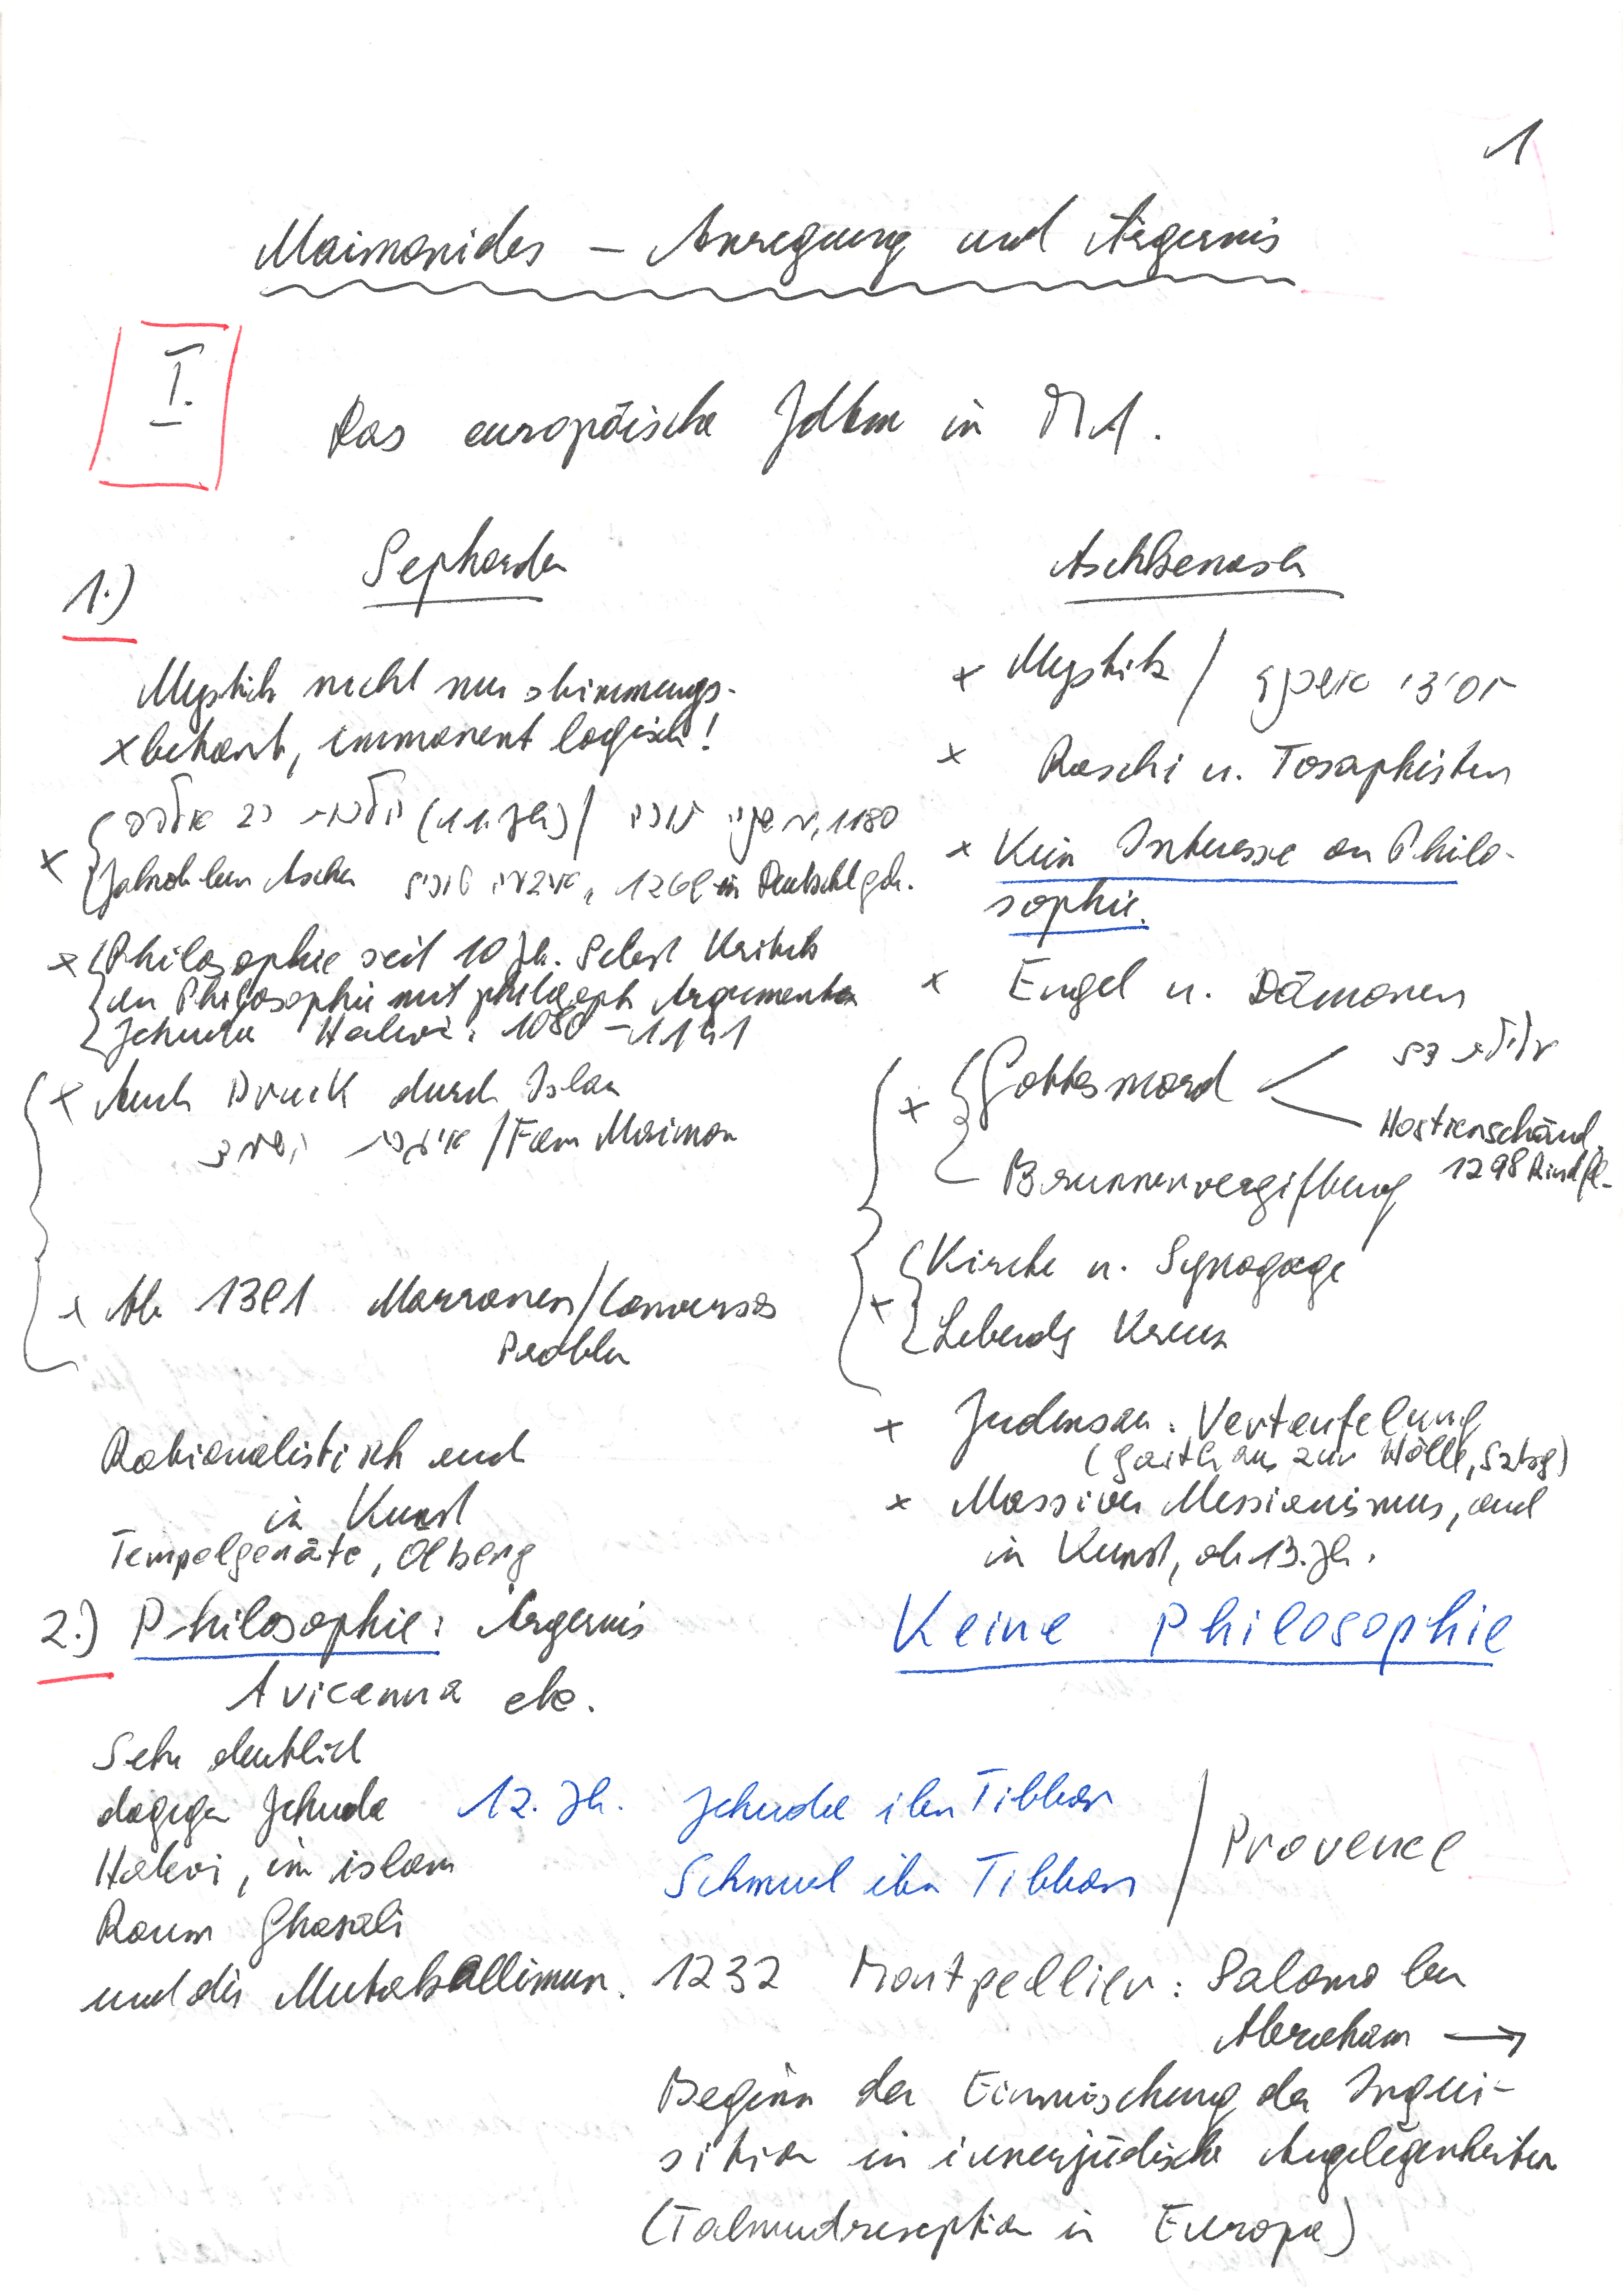 1
Maimonides – Anregung und Ärgernis
I.
Das europäische Jdtm in MA.
1.)
Sepharden
Mystik nicht nur stimmungs-
x betont, immanent logisch!
(11. Jh) / 1180
x Jakob ben Ascher 1269 in Deutschl geb.
x Philosophie seit 10 Jh. Selbst Kritik
an Philosophie mit philosoph Argumenten
Jehuda Halevi: 1080 – 1141
x Auch Druck durch Islam
/ Fam Maimon
x Ab 1391 Marranen/Conversos
Problem
Rationalistisch auch
in Kunst
Tempelgeräte, Ölberg
Aschkenasen
x Mystik / חסידי אשכנז
x Raschi u. Tosaphisten
x Kein Interesse an Philo-
sophie.
x Engel u. Dämonen
x Gottesmord
Hostienschänd.
1298 Rindfl.
Brunnenvergiftung
x Kirche u. Synagoge
Lebends Kreuz
x Judensau: Verteufelung
(Gasthaus zur Hölle, Szbg)
x Massiver Messianismus, auch
in Kunst, ab 13. Jh.
2.) Philosophie: Ärgernis
Avicenna etc.
Keine Philosophie
Sehr deutlich
dagegen Jehuda
Halevi, im islam
Raum Ghasali
und die Mutakallimun.
12. Jh. Jehuda ibn Tibbon
Schmuel ibn Tibbon / Provence
1232 Montpellier: Salomo ben
Abraham →
Beginn der Einmischung der Inqui-
sition in innerjüdische Angelegenheiten
(Talmudrezeption in Europa)